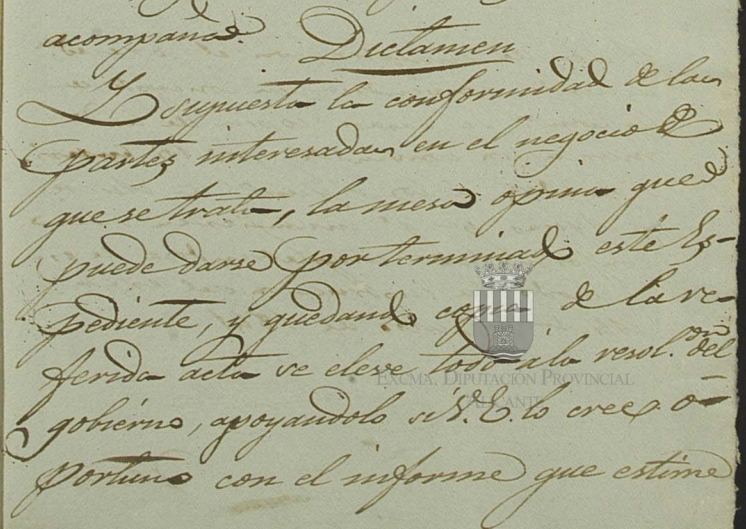 acompaña. Dictamen
Y supuesta la conformidad de las
partes interesadas en el negocio de
que se trata, la mesa opina que
puede darse por terminad este Es-
pediente, y quedando copia de la re-
ferida acta se eleve todo á la resol.on del
gobierno, apoyandolo si V. E. lo cree o-
portuno con el informe que estime
EXCMA. DIPUTACIÓN PROVINCIAL
ALICANTE